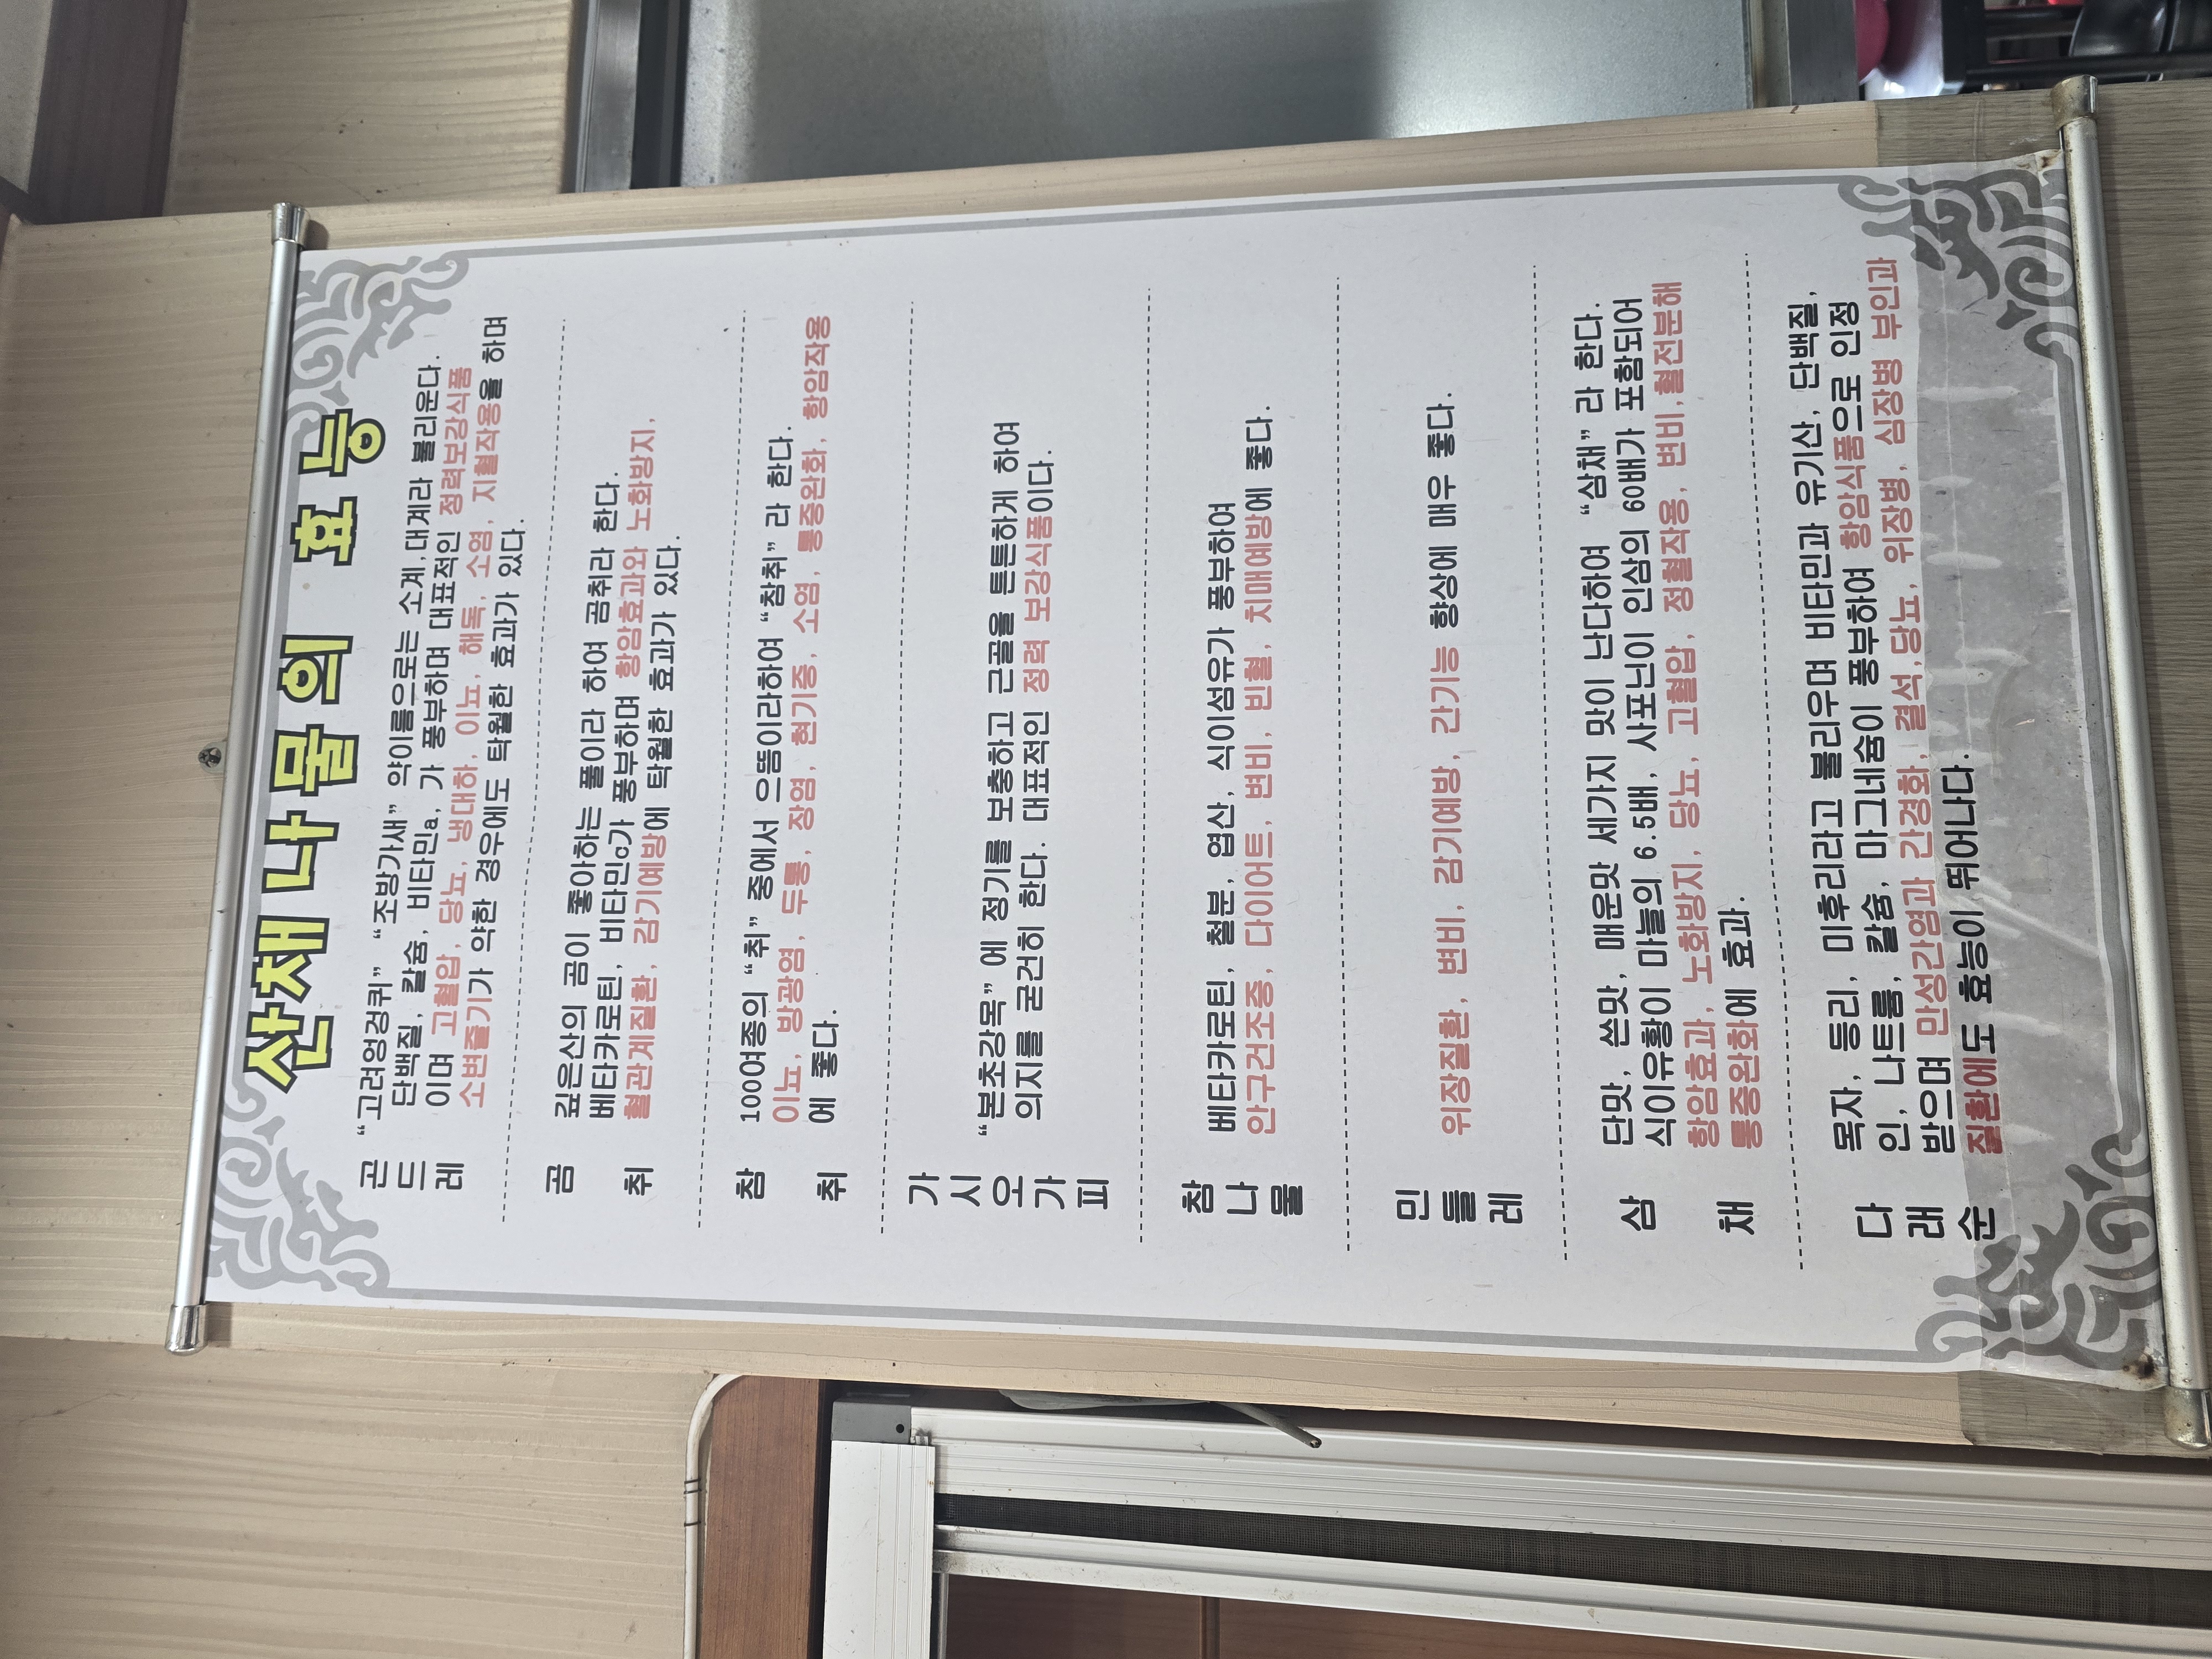 산채나물의 효능
곤드레
"고려엉겅퀴" "조방가새" 약이름으로는 소계,대계라 불리운다.
단백질, 칼슘, 비타민a, 가 풍부하며 대표적인 정력보강식품
이며 고혈압, 당뇨, 냉대하, 이뇨, 해독, 소염, 지혈작용을 하며
소변줄기가 약한 경우에도 탁월한 효과가 있다.
곰취
깊은산의 곰이 좋아하는 풀이라 하여 곰취라 한다.
베타카로틴, 비타민c가 풍부하며 항암효과와 노화방지,
혈관계질환, 감기예방에 탁월한 효과가 있다.
참취
100여종의 "취" 중에서 으뜸이라하여 "참취" 라 한다.
이뇨, 방광염, 두통, 장염, 현기증, 소염, 통증완화, 항암작용
에 좋다.
가시오가피
"본초강목" 에 정기를 보충하고 근골을 튼튼하게 하여
의지를 굳건히 한다. 대표적인 정력 보강식품이다.
참나물
베타카로틴, 철분, 엽산, 식이섬유가 풍부하여
안구건조증, 다이어트, 변비, 빈혈, 치매예방에 좋다.
민들레
위장질환, 변비, 감기예방, 간기능 향상에 매우 좋다.
삼채
단맛, 쓴맛, 매운맛 세가지 맛이 난다하여 "삼채" 라 한다.
식이유황이 마늘의 6.5배, 사포닌이 인삼의 60배가 포함되어
항암효과, 노화방지, 당뇨, 고혈압, 정혈작용, 변비,혈전분해
통증완화에 효과.
다래순
목자, 등리, 미후리라고 불리우며 비타민과 유기산, 단백질,
인, 나트륨, 칼슘, 마그네슘이 풍부하여 항암식품으로 인정
받으며 만성간염과 간경화, 결석,당뇨, 위장병, 심장병 부인과
질환에도 효능이 뛰어나다.